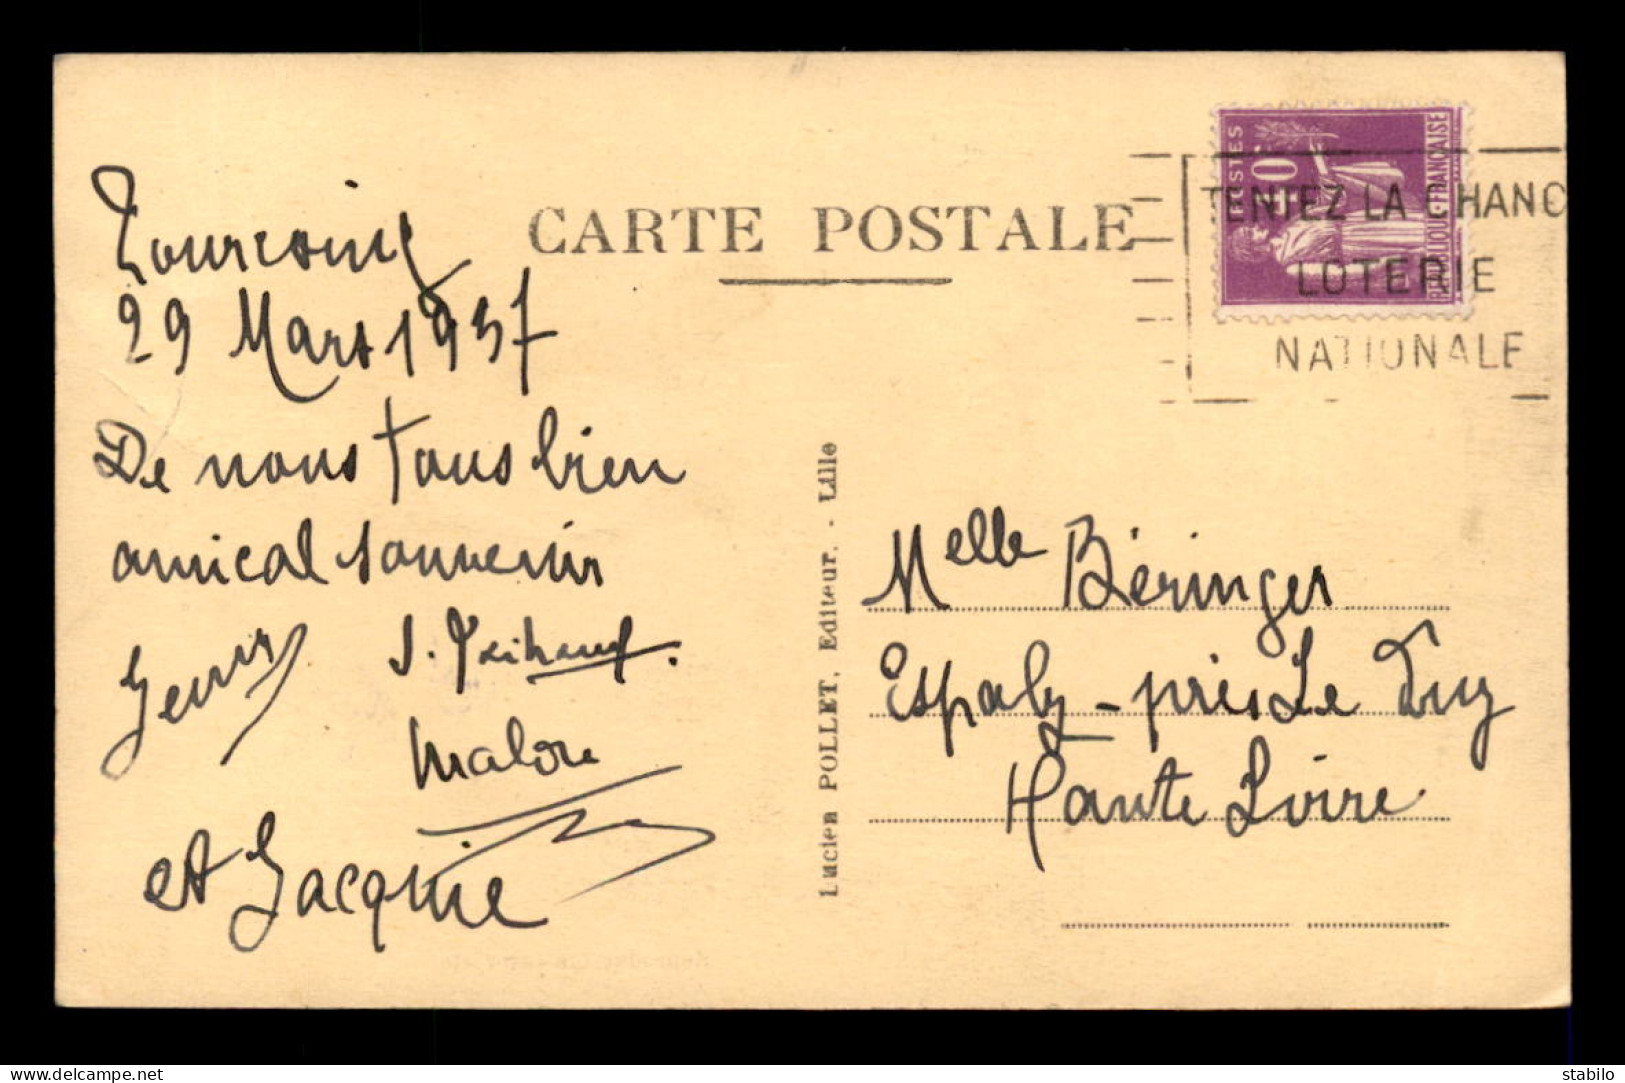 CARTE POSTALE
POSTES
RÉPUBLIQUE FRANÇAISE
TENTEZ LA CHANC
LOTERIE
NATIONALE
Tourcoing
29 Mars 1937
De nous tous bien
amical souvenir
J.
Malou
et Jacquie
Lucien POLLET, Editeur. - Lille
Melle Béringer
Espaly - près Le Puy
Haute Loire
stabilo